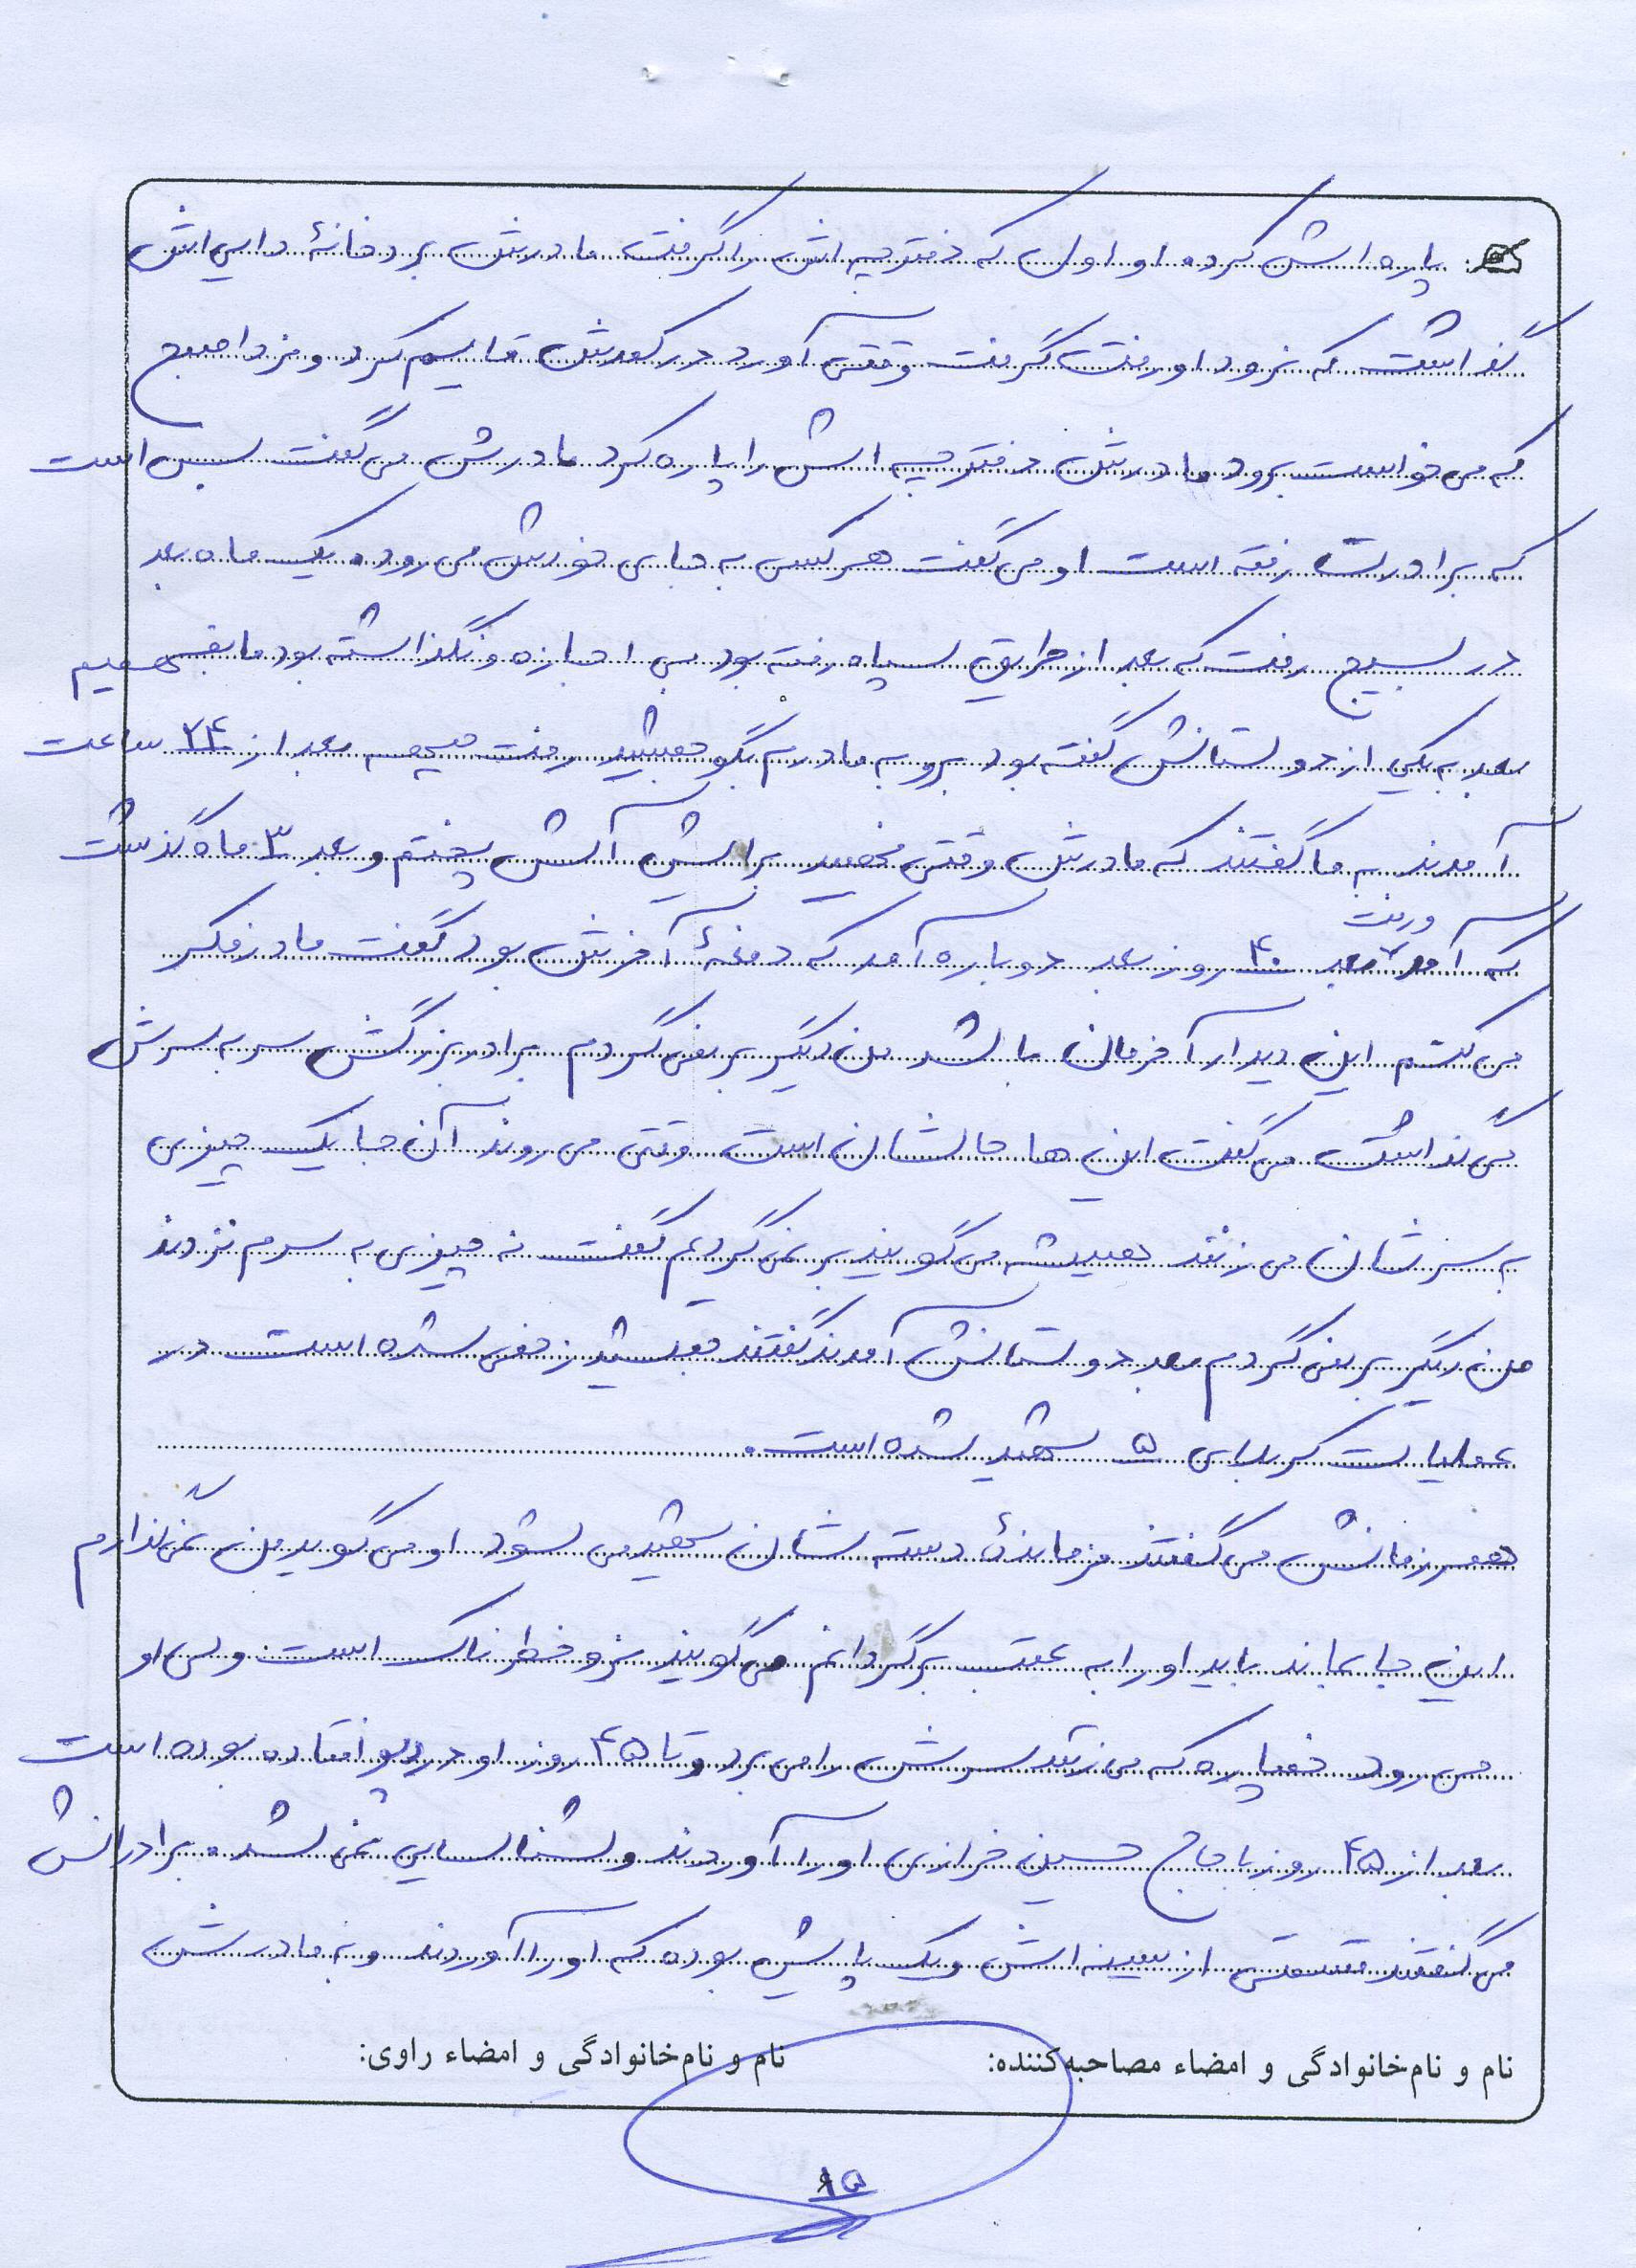 پاره اش کرده او اول که دفترچه اش را گرفت مادرش برد خانهٔ دایی اش
گذاشت که نرود او رفت گرفت وقتی آورد در کمدش قایم کرد و فردا صبح
که می خواست برود مادرش دفترچه اش را پاره کرد مادرش می گفت بس است
که برادرت رفته است او می گفت هر کس به جای خودش می رود. یک ماه بعد
در بسیج رفت که بعد از طریق سپاه رفته بود بی اجازه و نگذاشته بود ما بفهمیم
بعد به یکی از دوستانش گفته بود برو به مادرم بگو جمشید رفت جبهه بعد از ۲۴ ساعت
آمدند به ما گفتند که مادرش وقتی فهمید برایش آش پختم و بعد ۳ ماه گذشت
که آمد و رفت بعد ۴۰ روز بعد دوباره آمد که دفعهٔ آخرش بود گفت مادر فکر
می کنم این دیدار آخرمان باشد من دیگر بر نمی گردم برادر بزرگش سر به سرش
می گذاشت می گفت این ها حالشان است وقتی می روند آن جا یک چیزی
به سرشان می زند همیشه می گویند بر نمی گردیم گفت نه چیزی به سرم نزدند
من دیگر بر نمی گردم بعد دوستانش آمدند گفتند جمشید زخمی شده است در
عملیات کربلای ۵ شهید شده است.
همرزمانش می گفتند فرماندهٔ دسته شان شهید می شود او می گوید من نمی گذارم
این جا بماند باید او را به عقب برگردانم می گویند نرو خطرناک است ولی او
می رود خمپاره که می زنند سرش را می برد و تا ۴۵ روز او در افتاده بوده است
بعد از ۴۵ روز با حاج حسین خرازی او را آوردند و شناسایی نمی شد. برادرانش
می گفتند قسمتی از سینه اش و یک پایش بوده که او را آوردند و به مادرش
نام و نام‌خانوادگی و امضاء مصاحبه‌کننده: نام و نام‌خانوادگی و امضاء راوی:
۱۵